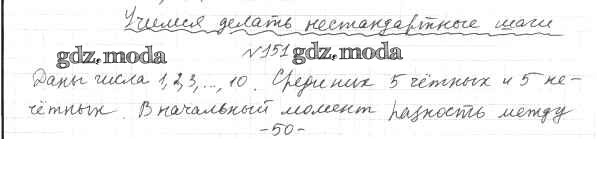 Учимся делать нестандартные шаги
gdz.moda №151 gdz.moda
Даны числа 1, 2, 3, ..., 10. Среди них 5 чётных и 5 не-
чётных. В начальный момент разность между
-50-